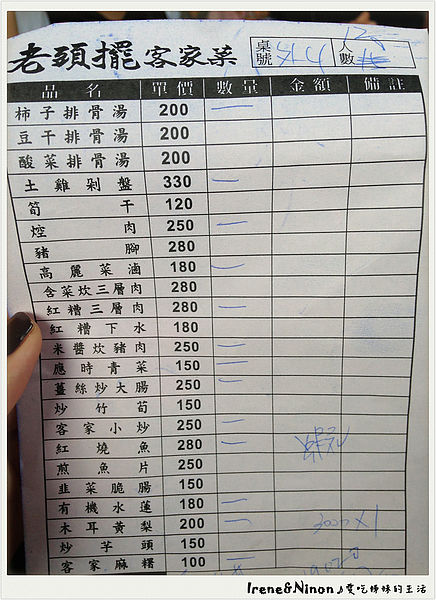 老頭擺客家菜 桌號 人數
品名 單價 數量 金額 備註
柿子排骨湯 200 一
豆干排骨湯 200
酸菜排骨湯 200
土雞剁盤 330 一
筍干 120
焢肉 250 一
豬腳 280
高麗菜滷 180 一
含菜炆三層肉 280
紅糟三層肉 280 一
紅糟下水 180
米醬炆豬肉 250 一
應時青菜 150 二
薑絲炒大腸 250 一
炒竹筍 150
客家小炒 250 一
紅燒魚 280 一
煎魚片 250
韭菜脆腸 150
有機水蓮 180 一
木耳黃梨 200 一
炒芋頭 150
客家麻糬 100 一
Irene&Ninon♪愛吃姊妹的生活